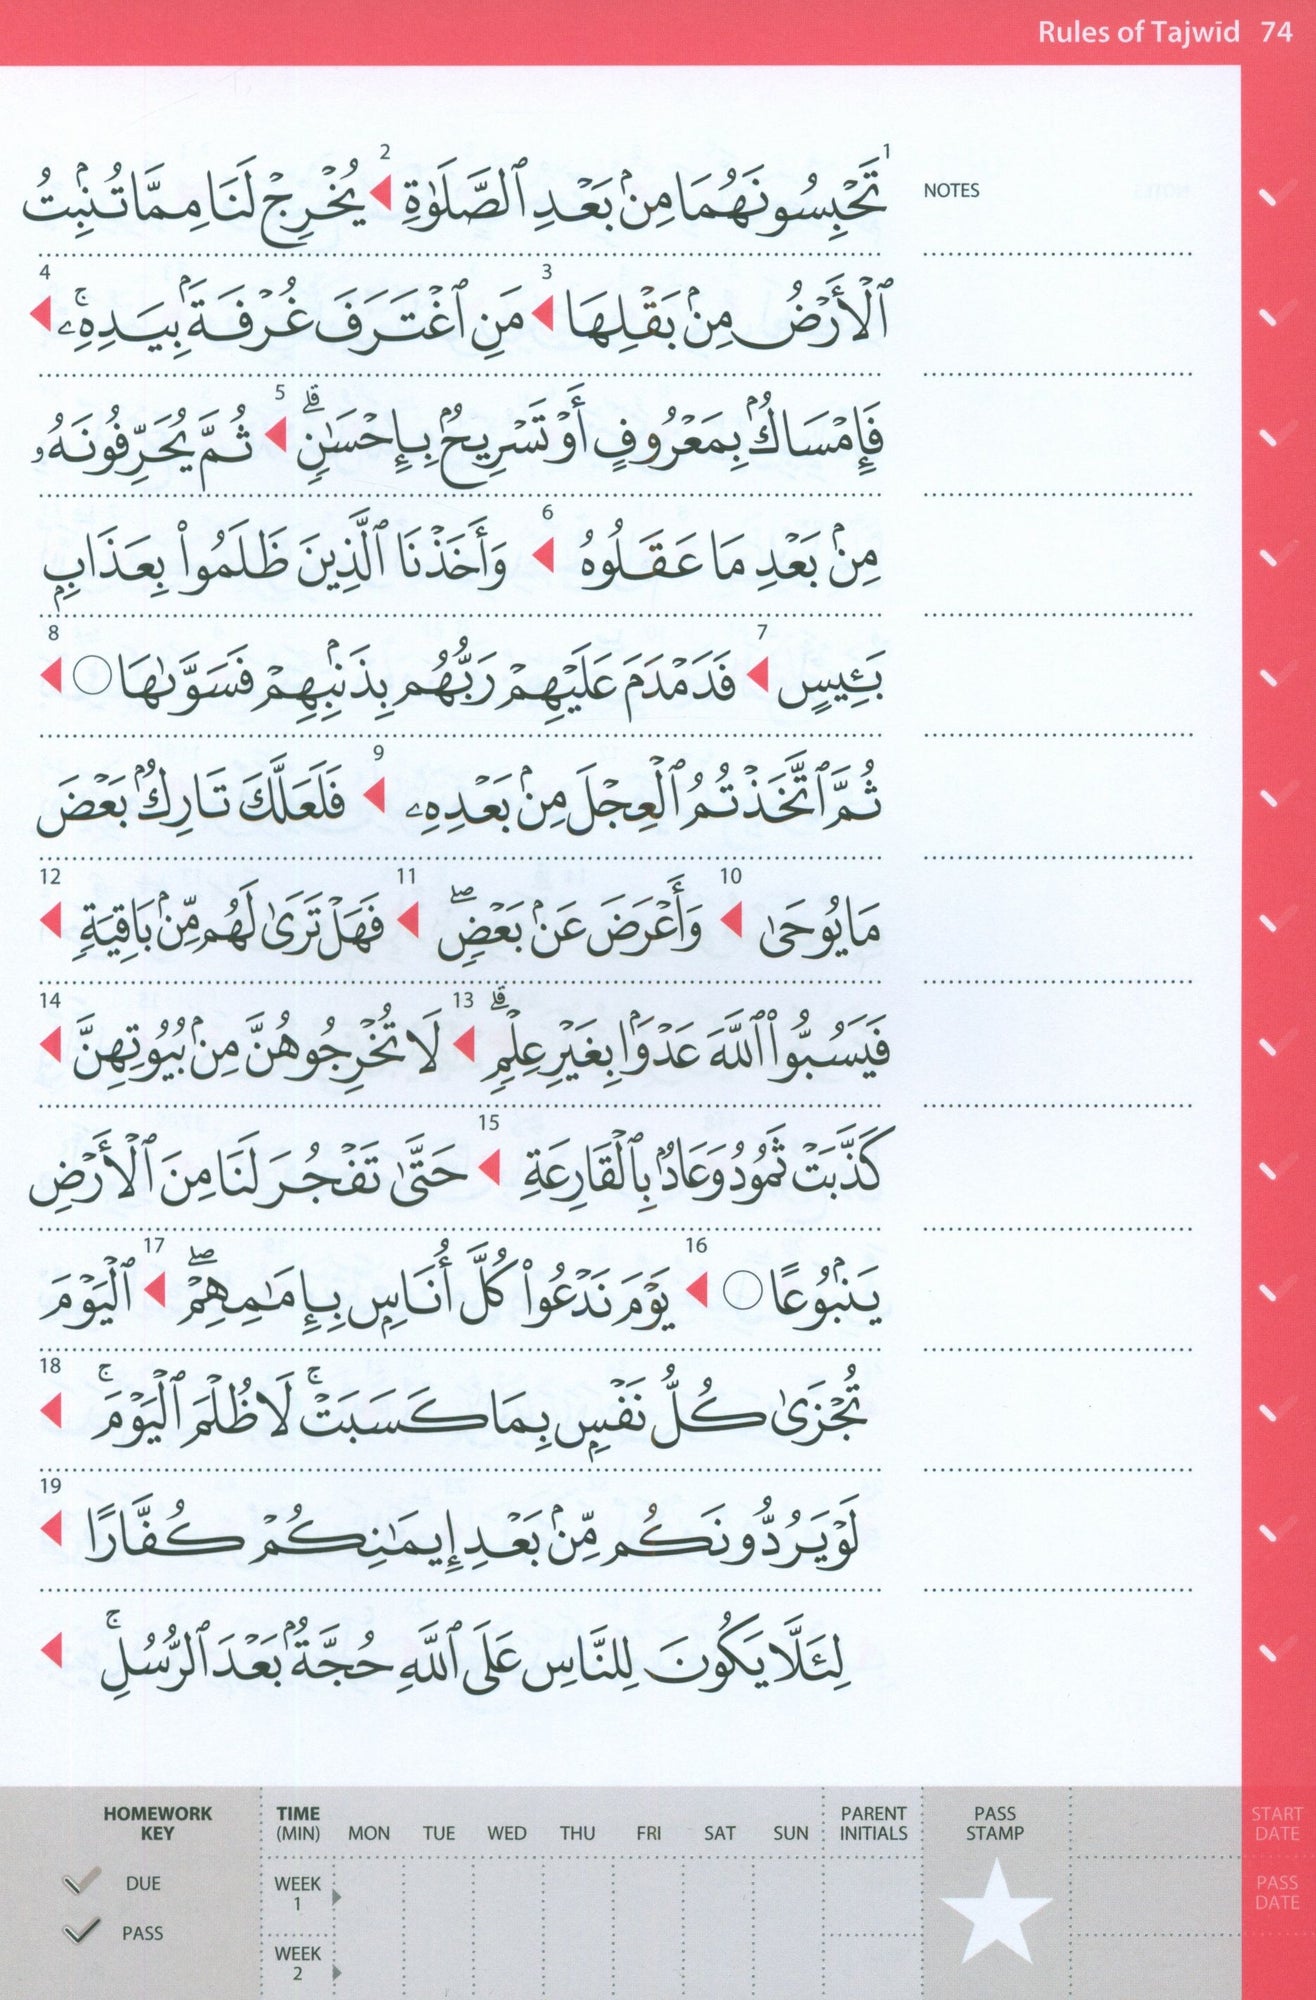 Rules of Tajwīd 74
1 2
تَحْبِسُونَهُمَا مِنۢ بَعْدِ ٱلصَّلَوٰةِ يُخْرِجْ لَنَا مِمَّا تُنۢبِتُ
NOTES
3 4
ٱلْأَرْضُ مِنۢ بَقْلِهَا مَنِ ٱغْتَرَفَ غُرْفَةَۢ بِيَدِهِۦۚ
5
فَإِمْسَاكُۢ بِمَعْرُوفٍ أَوْ تَسْرِيحُۢ بِإِحْسَٰنٍۗ ثُمَّ يُحَرِّفُونَهُۥ
6
مِنۢ بَعْدِ مَا عَقَلُوهُ وَأَخَذْنَا ٱلَّذِينَ ظَلَمُوا۟ بِعَذَابِۭ
7 8
بَـِٔيسٍ فَدَمْدَمَ عَلَيْهِمْ رَبُّهُم بِذَنۢبِهِمْ فَسَوَّىٰهَا ○
9
ثُمَّ ٱتَّخَذْتُمُ ٱلْعِجْلَ مِنۢ بَعْدِهِۦ فَلَعَلَّكَ تَارِكُۢ بَعْضَ
10 11 12
مَا يُوحَىٰ وَأَعْرَضَ عَنۢ بَعْضٍۖ فَهَلْ تَرَىٰ لَهُم مِّنۢ بَاقِيَةٍ
13 14
فَيَسُبُّوا۟ ٱللَّهَ عَدْوَۢا بِغَيْرِ عِلْمٍۗ لَا تُخْرِجُوهُنَّ مِنۢ بُيُوتِهِنَّ
15
كَذَّبَتْ ثَمُودُ وَعَادُۢ بِٱلْقَارِعَةِ حَتَّىٰ تَفْجُرَ لَنَا مِنَ ٱلْأَرْضِ
16 17
يَنۢبُوعًا ○ يَوْمَ نَدْعُوا۟ كُلَّ أُنَاسِۭ بِإِمَٰمِهِمْۖ ٱلْيَوْمَ
18
تُجْزَىٰ كُلُّ نَفْسِۭ بِمَا كَسَبَتْۚ لَا ظُلْمَ ٱلْيَوْمَۚ
19
لَوْ يَرُدُّونَكُم مِّنۢ بَعْدِ إِيمَٰنِكُمْ كُفَّارًا
لِئَلَّا يَكُونَ لِلنَّاسِ عَلَى ٱللَّهِ حُجَّةُۢ بَعْدَ ٱلرُّسُلِۚ
HOMEWORK KEY
DUE
PASS
TIME (MIN) MON TUE WED THU FRI SAT SUN PARENT INITIALS PASS STAMP START DATE
WEEK 1
WEEK 2
PASS DATE